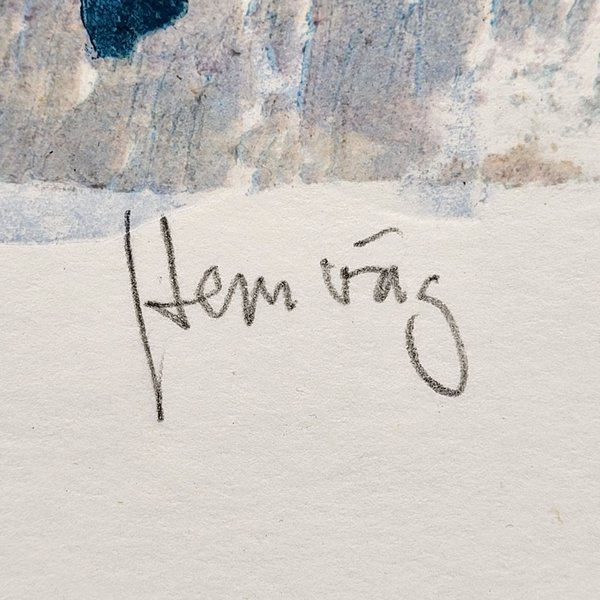 Hem väg